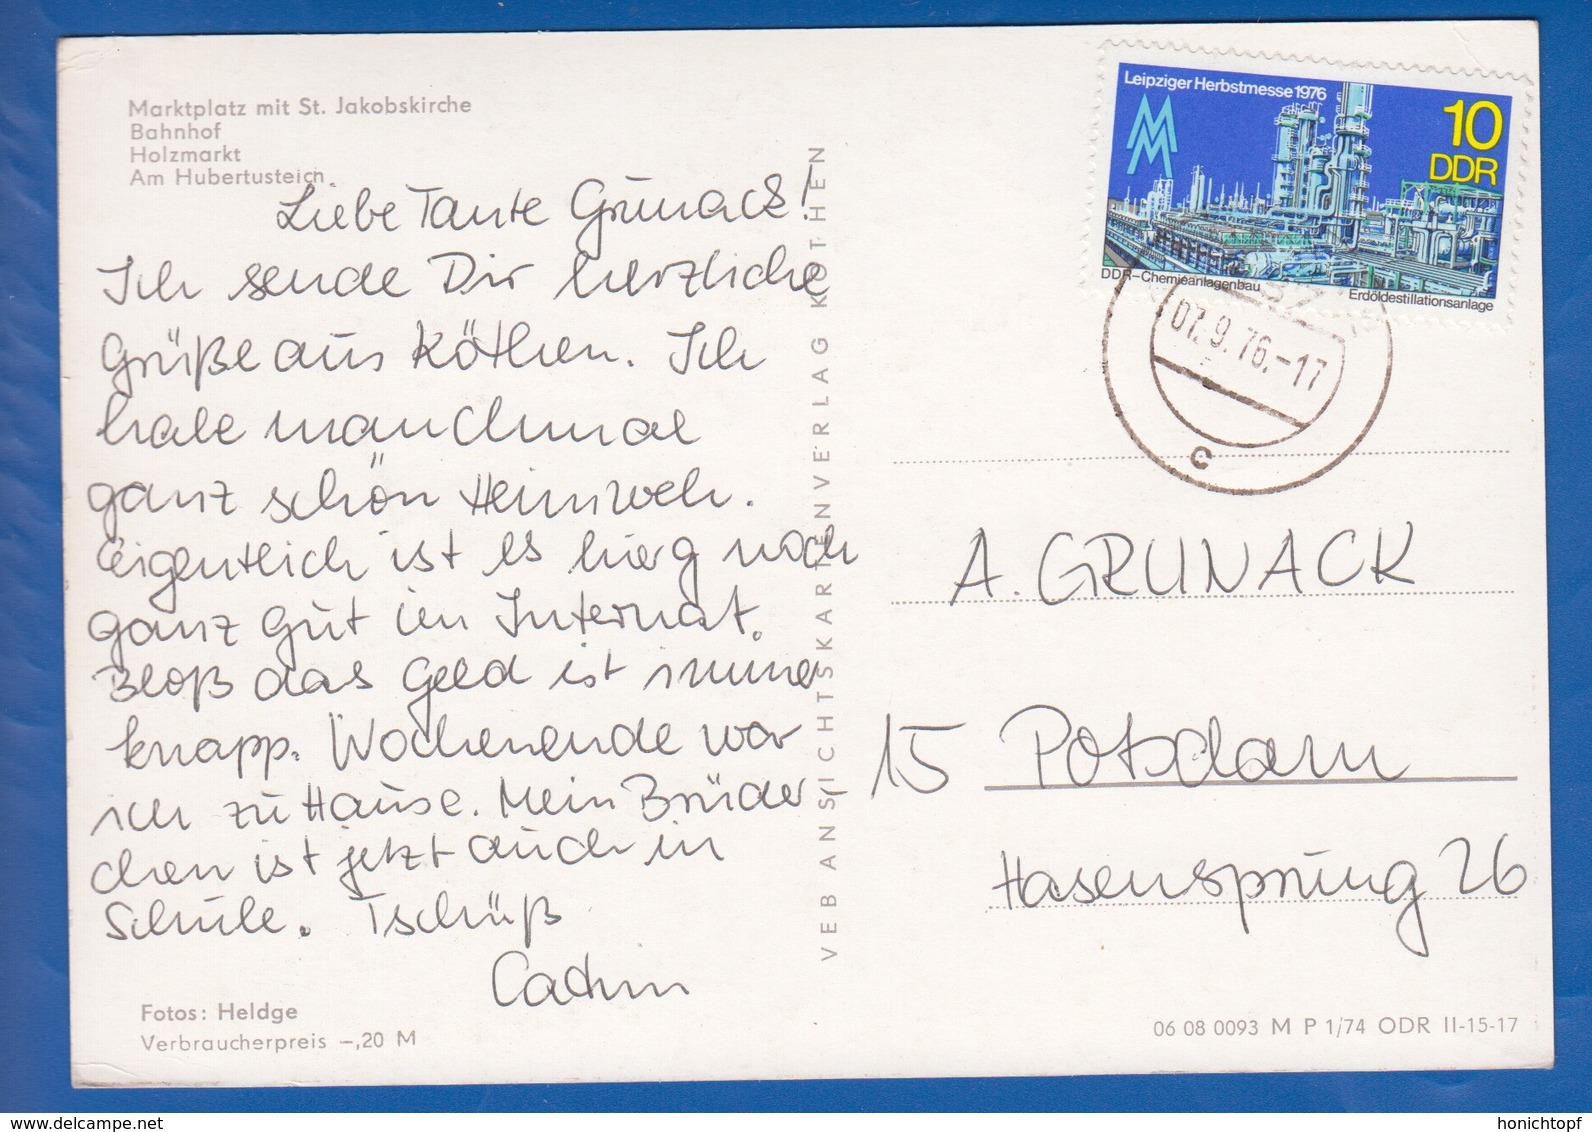 Marktplatz mit St. Jakobskirche
Bahnhof
Holzmarkt
Am Hubertusteich
Liebe Tante Grunack!
Ich sende Dir herzliche
Grüße aus Köthen. Ich
habe manchmal
ganz schön Heimweh.
Eigentlich ist es hier noch
ganz gut im Internat.
Bloß das Geld ist immer
knapp. Wochenende war
ich zu Hause. Mein Brüder-
chen ist jetzt auch in
Schule. Tschüß
Fotos: Heldge
Verbraucherpreis –,20 M
VEB ANSICHTSKARTENVERLAG KÖTHEN
Leipziger Herbstmesse 1976
MM
10
DDR
DDR–Chemieanlagenbau
Erdöldestillationsanlage
07.9.76.-17
c
A. GRUNACK
15 Potsdam
Hasensprung 26
06 08 0093 M P 1/74 ODR II-15-17
honichtopf
www.delcampe.net